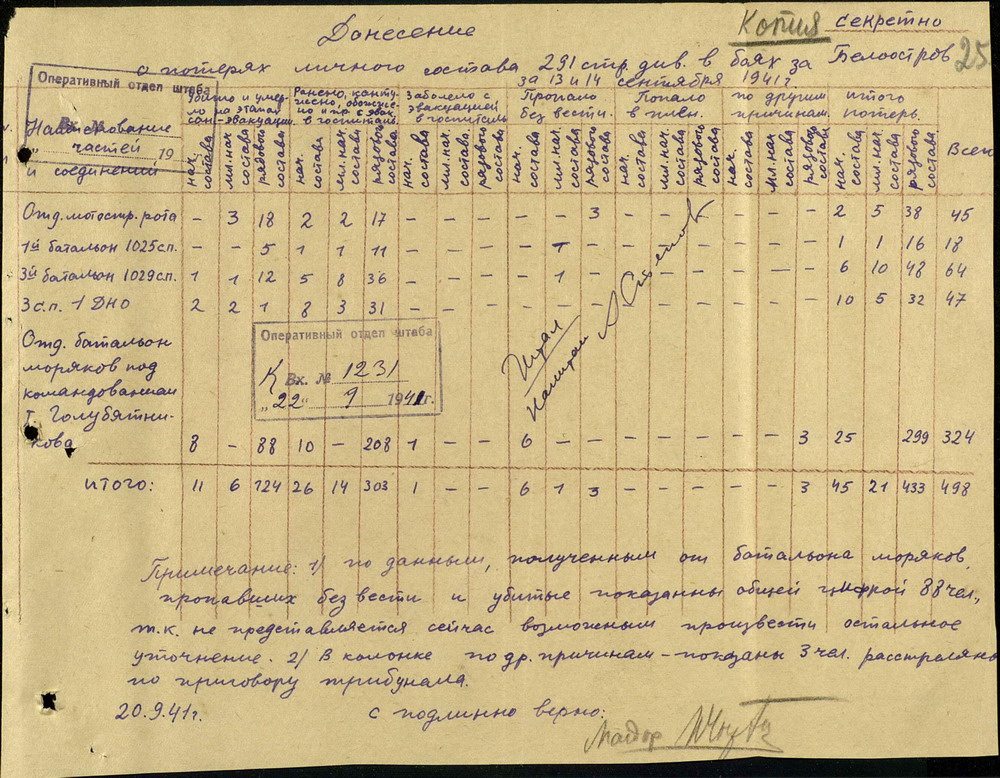 Копия Секретно
Донесение
25
о потерях личного состава 291 стр. див. в боях за Белоостров
за 13 и 14 сентября 1941г.
Оперативный отдел штаба
Вх. №
19
Наименование частей и соединений
Убито и умерло на этапах сан-эвакуации
Ранено, контужено, обожжено и пр. с эвак. в госпиталь
Заболело с эвакуацией в госпиталь
Пропало без вести.
Попало в плен.
по другим причинам.
итого потерь.
Всего
нач. состава мл. нач. состава рядового состава нач. состава мл. нач. состава рядового состава нач. состава мл. нач. состава рядового состава нач. состава мл. нач. состава рядового состава нач. состава мл. нач. состава рядового состава нач. состава мл. нач. состава рядового состава нач. состава мл. нач. состава рядового состава
Отд. мотостр. рота – 3 18 2 2 17 – – – – – 3 – – – – – – 2 5 38 45
1й батальон 1025сп. – – 5 1 1 11 – – – – 1 – – – – – – – 1 1 16 18
3й батальон 1029сп. 1 1 12 5 8 36 – – – – 1 – – – – – – – 6 10 48 64
3 с.п. 1 ДНО 2 2 1 8 3 31 – – – – – – – – – – – – 10 5 32 47
Оперативный отдел штаба
К Вх. № 1231
„22" 9 1941г.
Отд. батальон
моряков под
командованием
т. Голубятни-
кова 8 – 88 10 – 208 1 – – 6 – – – – – – – 3 25 299 324
итого: 11 6 124 26 14 303 1 – – 6 1 3 – – – – – 3 45 21 433 498
Примечание: 1/ по данным, полученным от батальона моряков,
пропавших без вести и убитые показанны общей цифрой 88 чел.,
т.к. не представляется сейчас возможным произвести остальное
уточнение. 2/ В колонке по др. причинам – показаны 3 чел. расстреляны
по приговору трибунала.
20.9.41г. с подлинно верно:
Майор